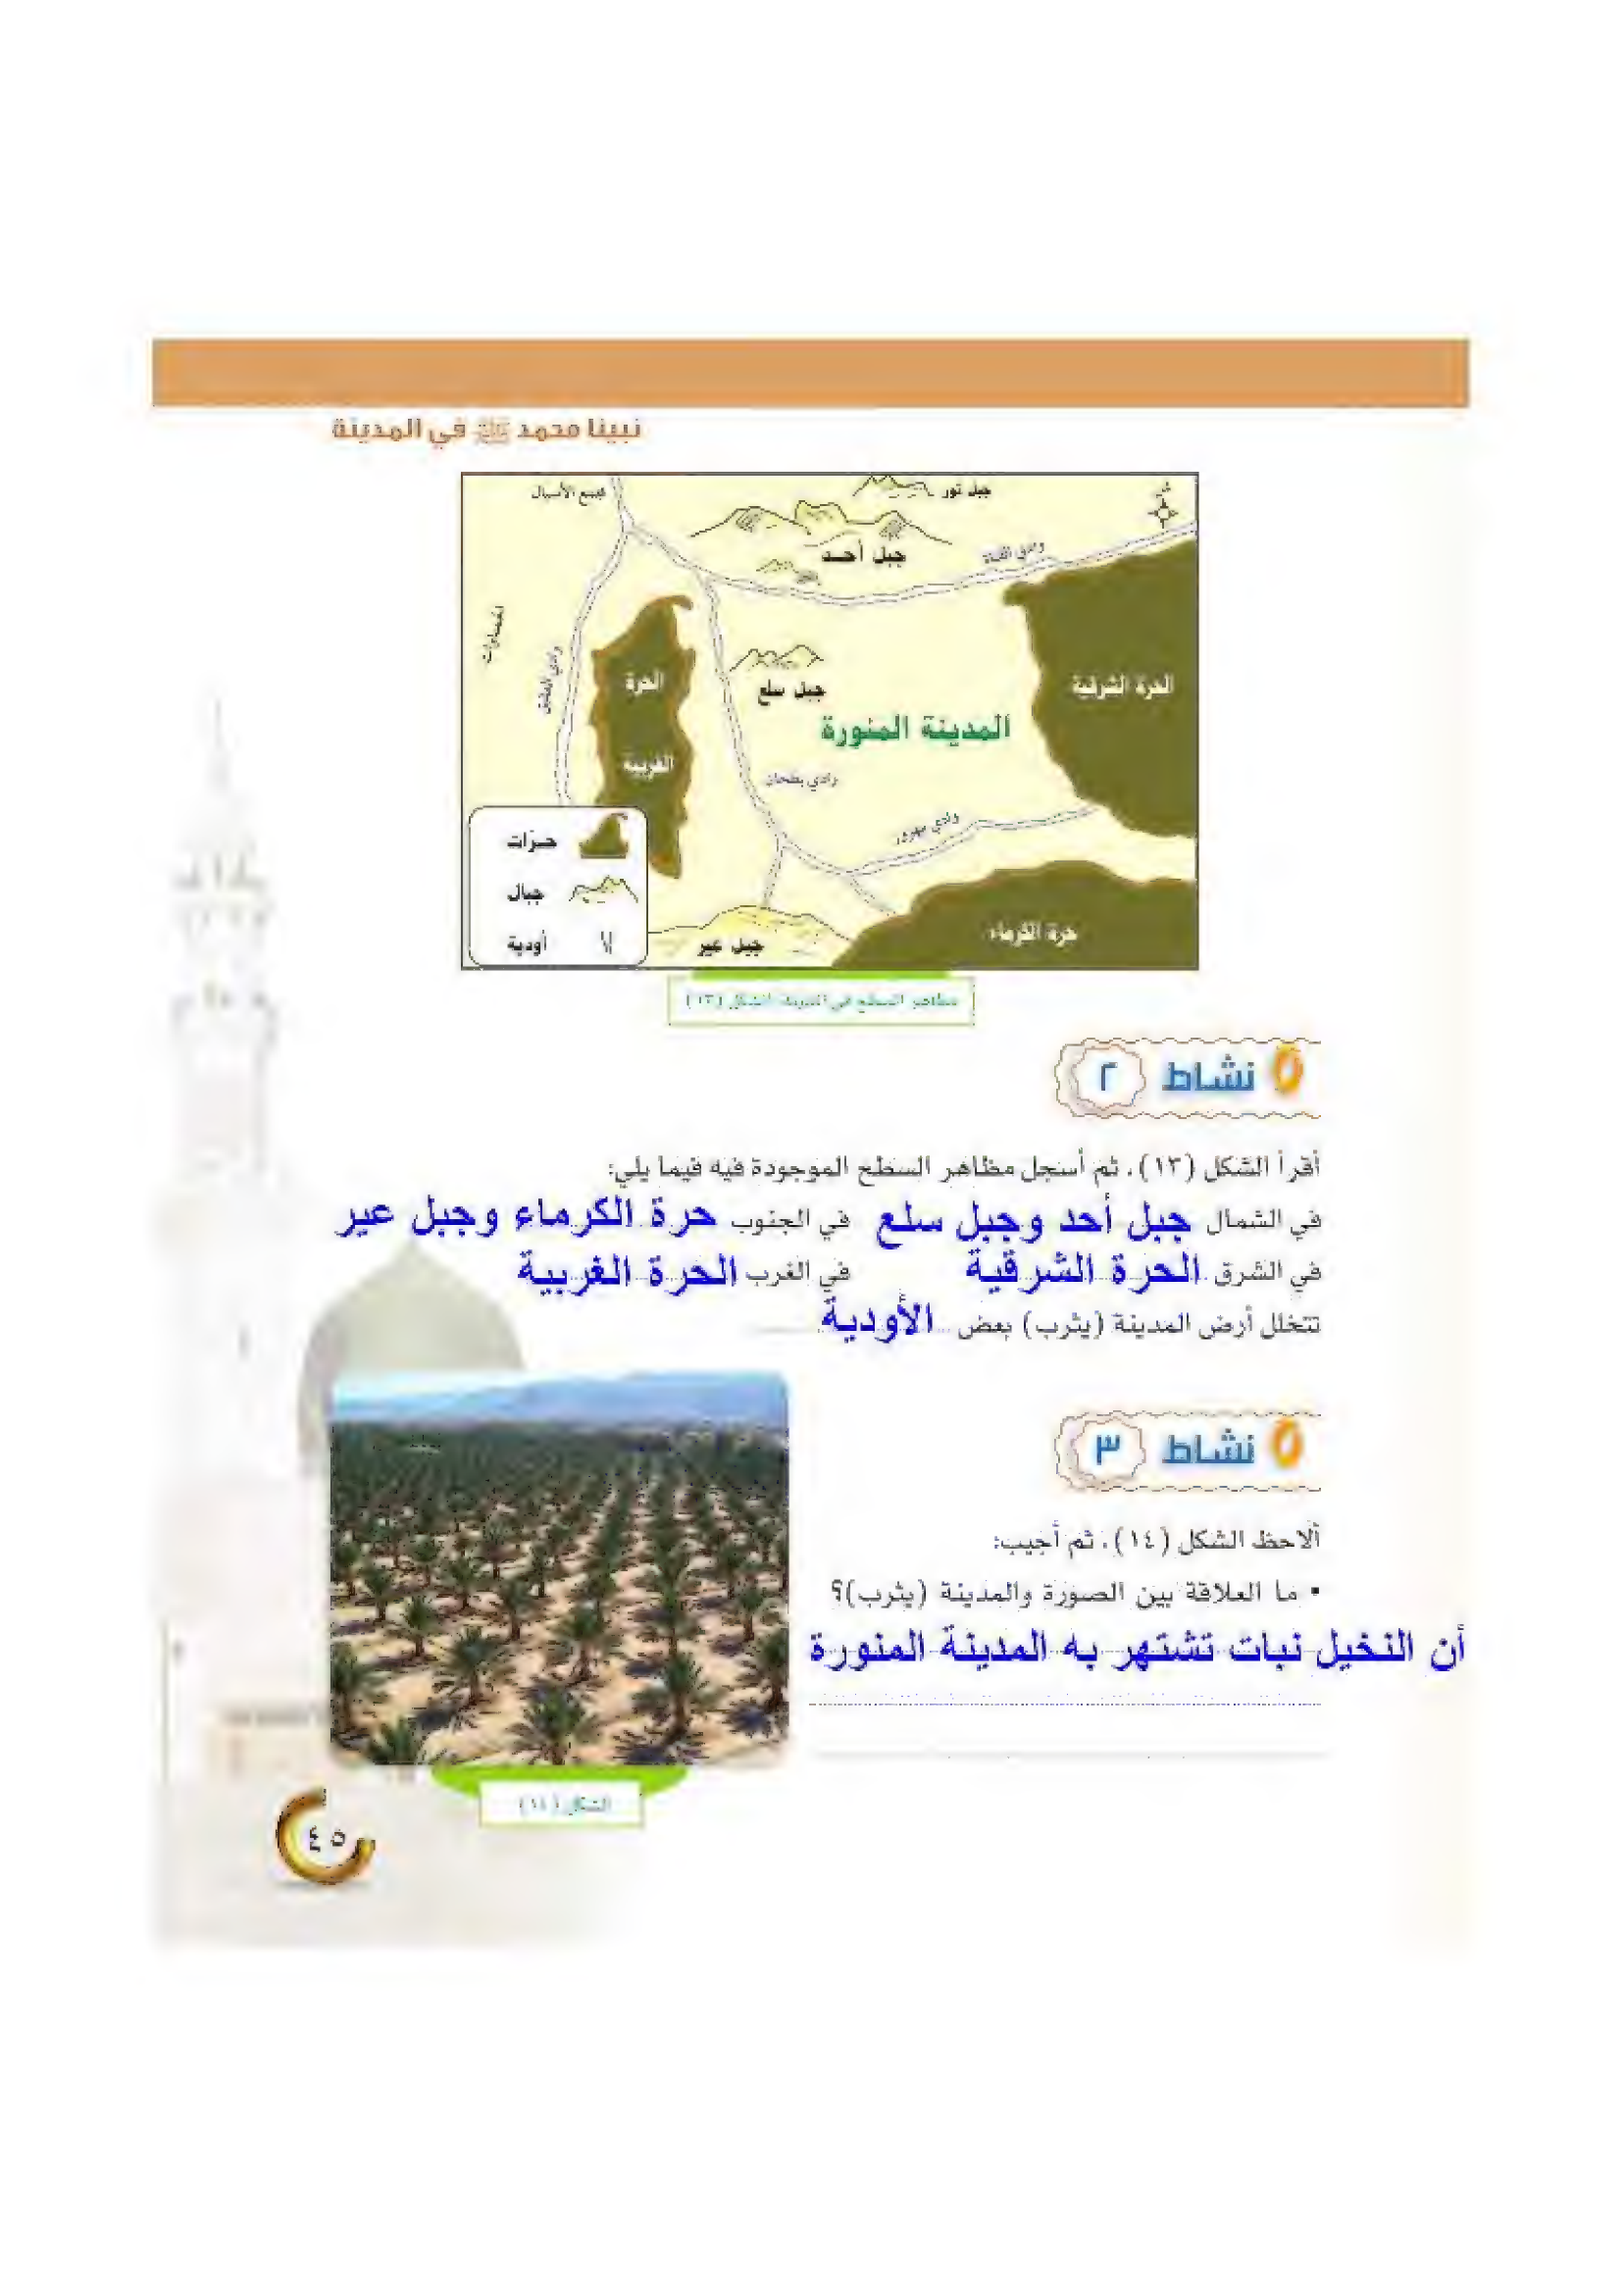 نبينا محمد ﷺ في المدينة
مجمع الأسيال
جبل ثور
ش
جبل أحد
وادي القناة
وادي العقيق
الحرة
الغربية
جبل سلع
الحرة الشرقية
المدينة المنورة
وادي بطحان
وادي مهزور
حرات
جبال
أودية
جبل عير
حرة الكرماء
مظاهر السطح في المدينة، الشكل (١٣)
نشاط ٢
أقرأ الشكل (١٣)، ثم أسجل مظاهر السطح الموجودة فيه فيما يلي:
في الشمال جبل أحد وجبل سلع في الجنوب حرة الكرماء وجبل عير
في الشرق الحرة الشرقية في الغرب الحرة الغربية
تتخلل أرض المدينة (يثرب) بعض الأودية
نشاط ٣
ألاحظ الشكل (١٤)، ثم أجيب:
• ما العلاقة بين الصورة والمدينة (يثرب)؟
أن النخيل نبات تشتهر به المدينة المنورة
الشكل (١٤)
٤٥